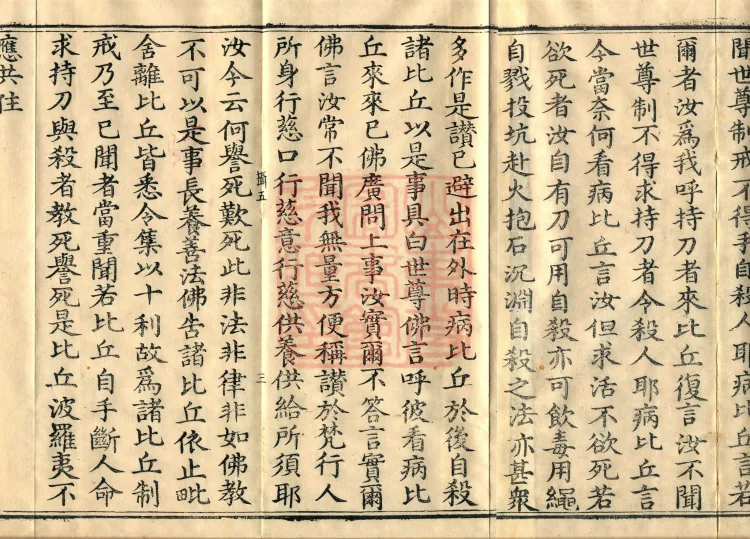 聞世尊制戒不得手自殺人耶病比丘言若
爾者汝為我呼持刀者來比丘復言汝不聞
世尊制不得求持刀者令殺人耶病比丘言
今當奈何看病比丘言汝但求活不欲死若
欲死者汝自有刀可用自殺亦可飲毒用繩
自戮投坑赴火抱石沉淵自殺之法亦甚衆
多作是讃已避出在外時病比丘於後自殺
諸比丘以是事具白世尊佛言呼彼看病比
丘來來已佛廣問上事汝實爾不答言實爾
佛言汝常不聞我無量方便稱讃於梵行人
所身行慈口行慈意行慈供養供給所須耶
攝五
三
汝今云何譽死歎死此非法非律非如佛教
不可以是事長養善法佛告諸比丘依止毗
舍離比丘皆悉令集以十利故為諸比丘制
戒乃至已聞者當重聞若比丘自手斷人命
求持刀與殺者教死譽死是比丘波羅夷不
應共住